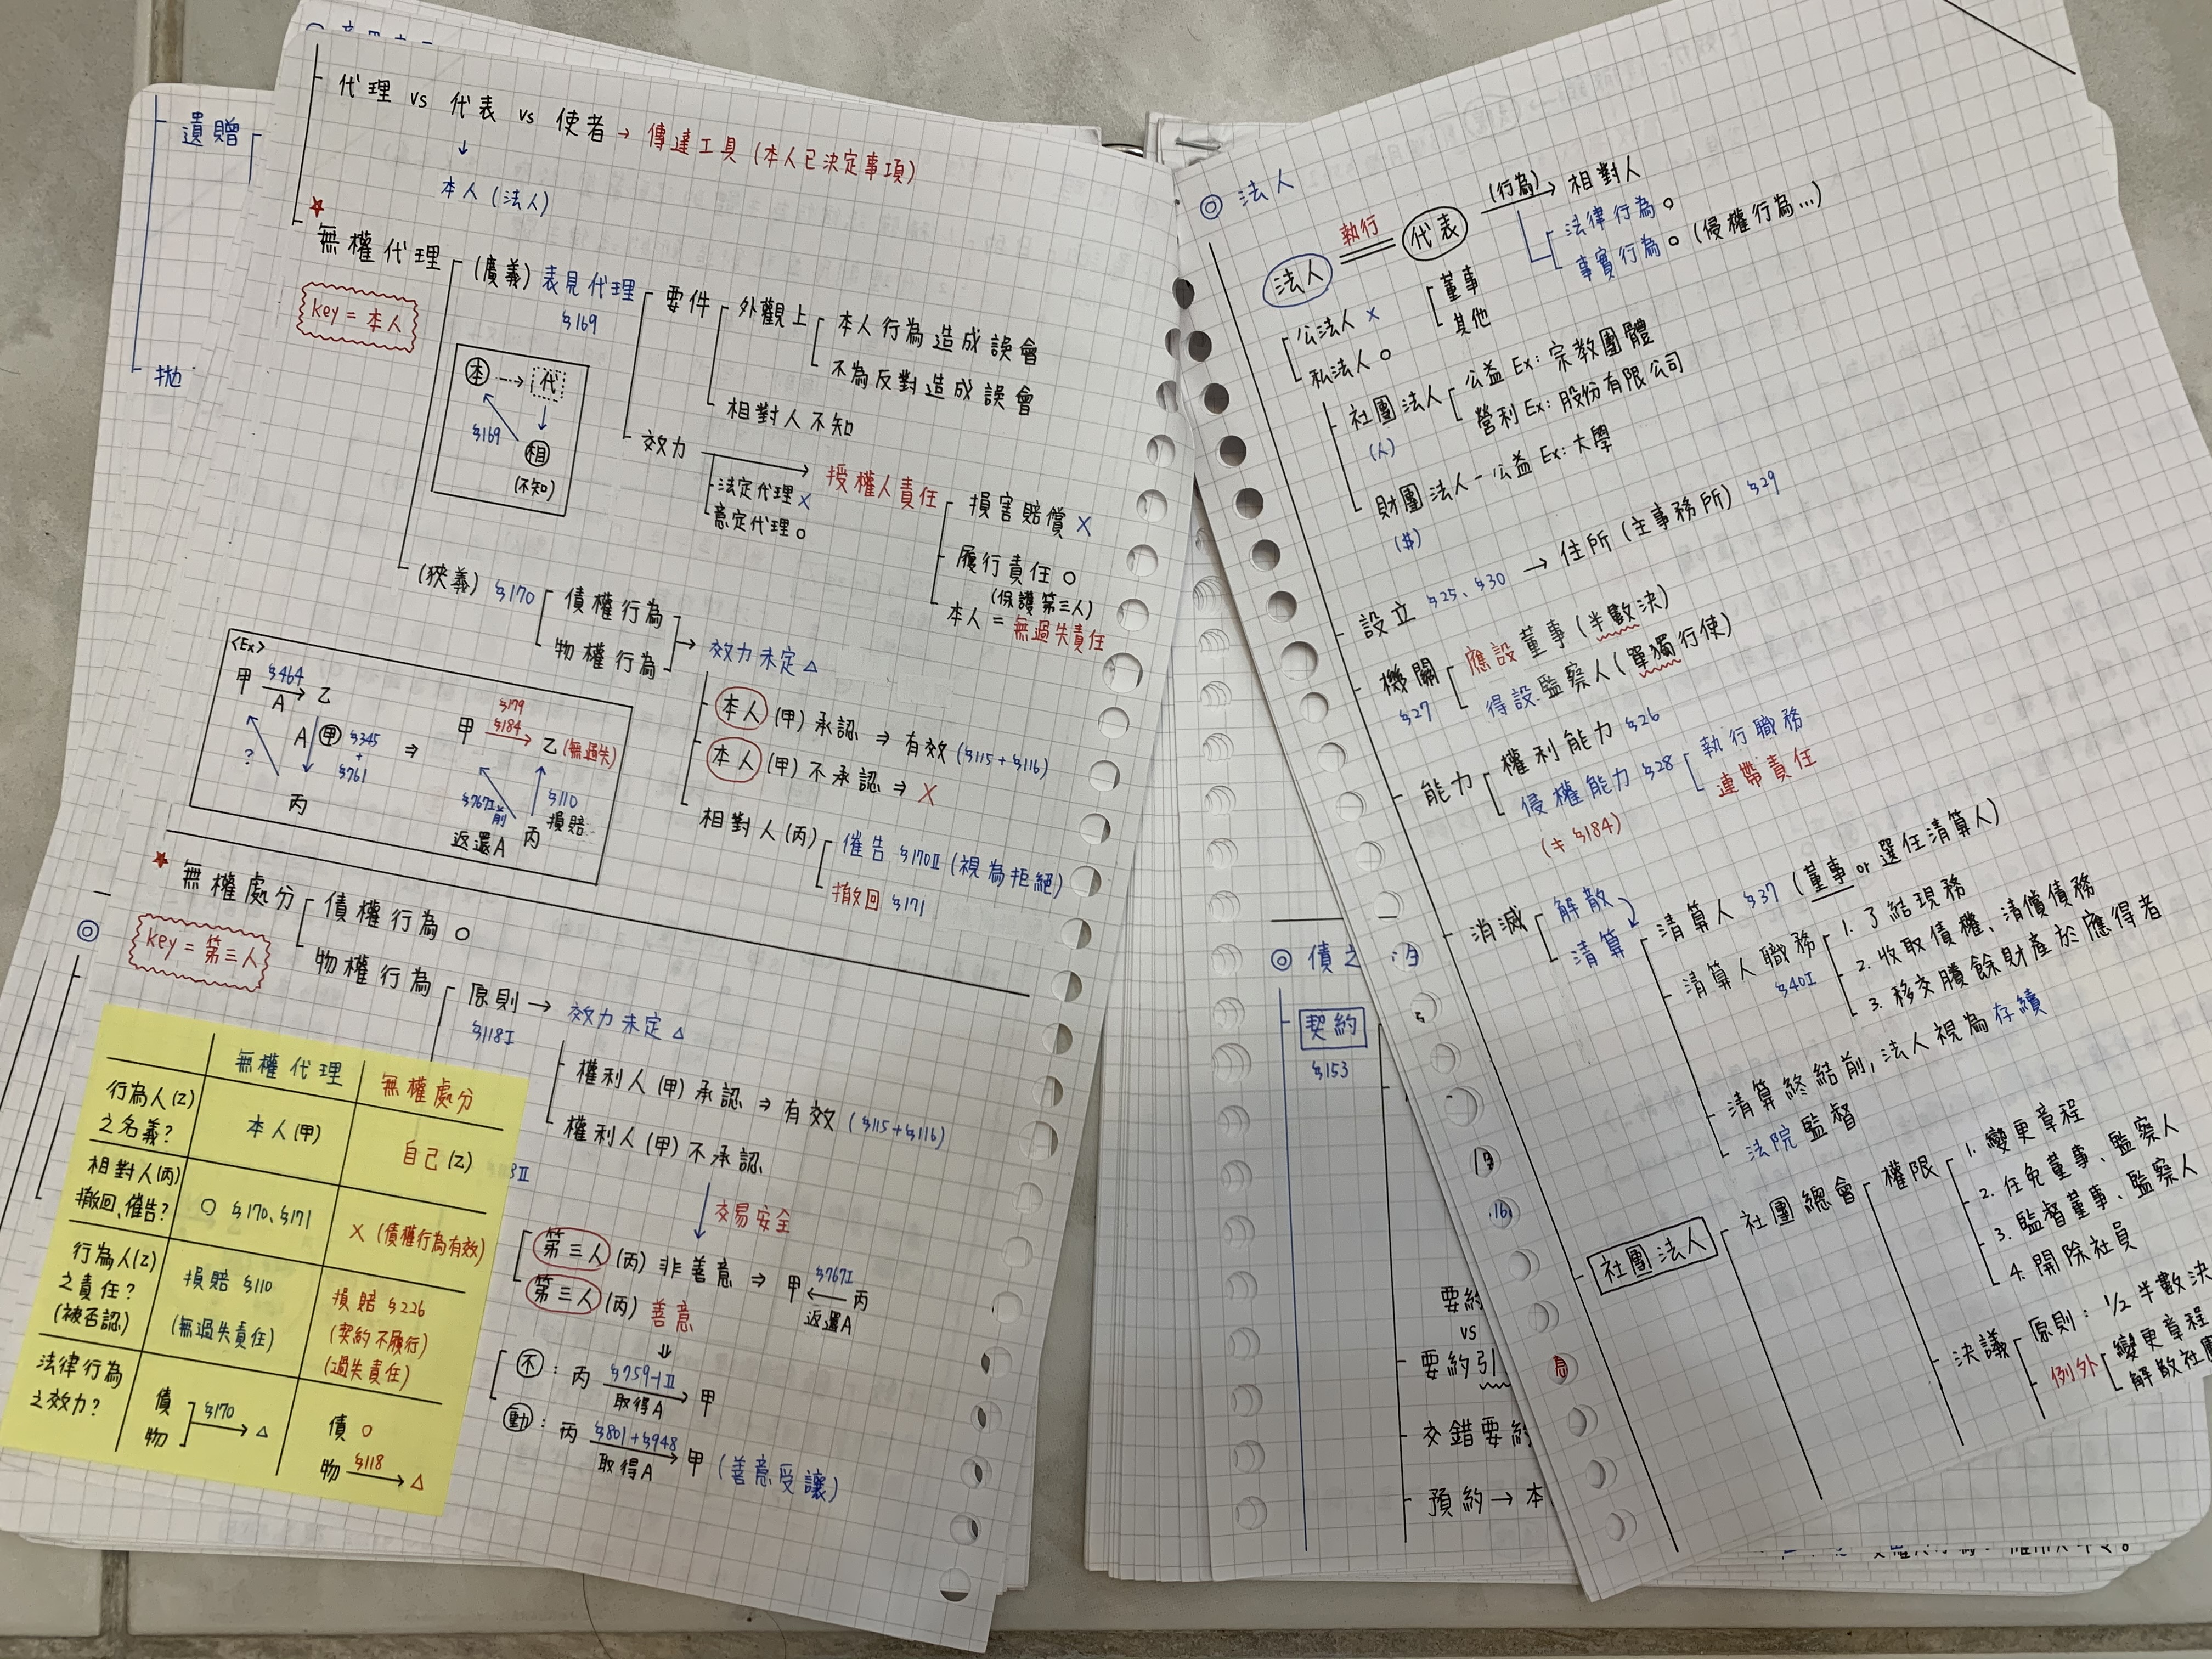 遺贈
拋
代理 vs 代表 vs 使者 → 傳達工具 (本人已決定事項)
↓
本人 (法人)
★
無權代理
key = 本人
(廣義) 表見代理
§169
要件
外觀上
本人行為造成誤會
不為反對造成誤會
相對人不知
本 → 代
§169
相
(不知)
效力 → 授權人責任
法定代理 X
意定代理 O
損害賠償 X
履行責任 O
(保護第三人)
本人 = 無過失責任
(狹義) §170
債權行為
物權行為
→ 效力未定 △
本人 (甲) 承認 ⇒ 有效 (§115+§116)
本人 (甲) 不承認 ⇒ X
相對人 (丙)
催告 §170Ⅱ (視為拒絕)
撤回 §171
<Ex>
甲 §464 → 乙
A
A 甲 §345
+
§761
?
丙
⇒
§179
甲 §184 → 乙 (無過失)
§767Ⅰ前
返還A
丙
§110
損賠
★
無權處分
key = 第三人
債權行為 O
物權行為
原則 → 效力未定 △
§118Ⅰ
權利人 (甲) 承認 ⇒ 有效 (§115+§116)
權利人 (甲) 不承認
↓ 交易安全
第三人 (丙) 非善意 ⇒ 甲 ← 丙
§767Ⅰ
返還A
第三人 (丙) 善意
⇓
不 : 丙 §759-1Ⅱ → 甲
取得A
動 : 丙 §801+§948 → 甲 (善意受讓)
取得A
無權代理 無權處分
行為人(乙)之名義? 本人(甲) 自己(乙)
相對人(丙)撤回、催告? O §170、§171 X (債權行為有效)
行為人(乙)之責任? (被否認) 損賠 §110 (無過失責任) 損賠 §226 (契約不履行) (過失責任)
法律行為之效力? 債 物 §170 → △ 債 O 物 §118 → △
◎
◎ 法人
法人 執行 代表 (行為) → 相對人
法律行為 O
事實行為 O (侵權行為...)
公法人 X
私法人 O
董事
其他
社團法人
(人)
公益 Ex: 宗教團體
營利 Ex: 股份有限公司
財團法人 - 公益 Ex: 大學
($)
設立 §25、§30 → 住所 (主事務所) §29
機關
§27
應設董事 (半數決)
得設監察人 (單獨行使)
能力
權利能力 §26
侵權能力 §28
(≠ §184)
執行職務
連帶責任
消滅
解散
清算
清算人 §37 (董事 or 選任清算人)
清算人職務
§40Ⅰ
1. 了結現務
2. 收取債權、清償債務
3. 移交賸餘財產於應得者
清算終結前, 法人視為存續
法院監督
社團法人
社團總會
權限
1. 變更章程
2. 任免董事、監察人
3. 監督董事、監察人
4. 開除社員
決議
原則: 1/2 半數決
例外
變更章程
解散社團
◎ 債之
契約
§153
要約
vs
要約引
交錯要約
預約 → 本